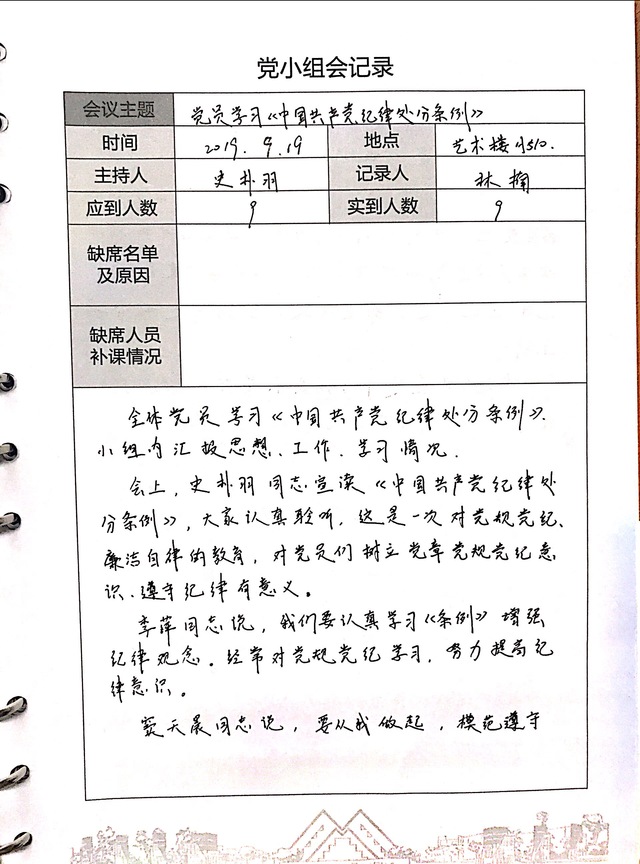 党小组会记录
会议主题 党员学习《中国共产党纪律处分条例》
时间 2019.9.19 地点 艺术楼510.
主持人 史朴羽 记录人 林楠
应到人数 9 实到人数 9
缺席名单
及原因
缺席人员
补课情况
全体党员学习《中国共产党纪律处分条例》、
小组内汇报思想、工作、学习情况.
会上,史朴羽同志宣读《中国共产党纪律处
分条例》,大家认真聆听,这是一次对党规党纪、
廉洁自律的教育,对党员们树立党章党规党纪意
识、遵守纪律有意义。
李萍同志说,我们要认真学习《条例》增强
纪律观念。经常对党规党纪学习,努力提高纪
律意识。
窦天晨同志说,要从我做起,模范遵守